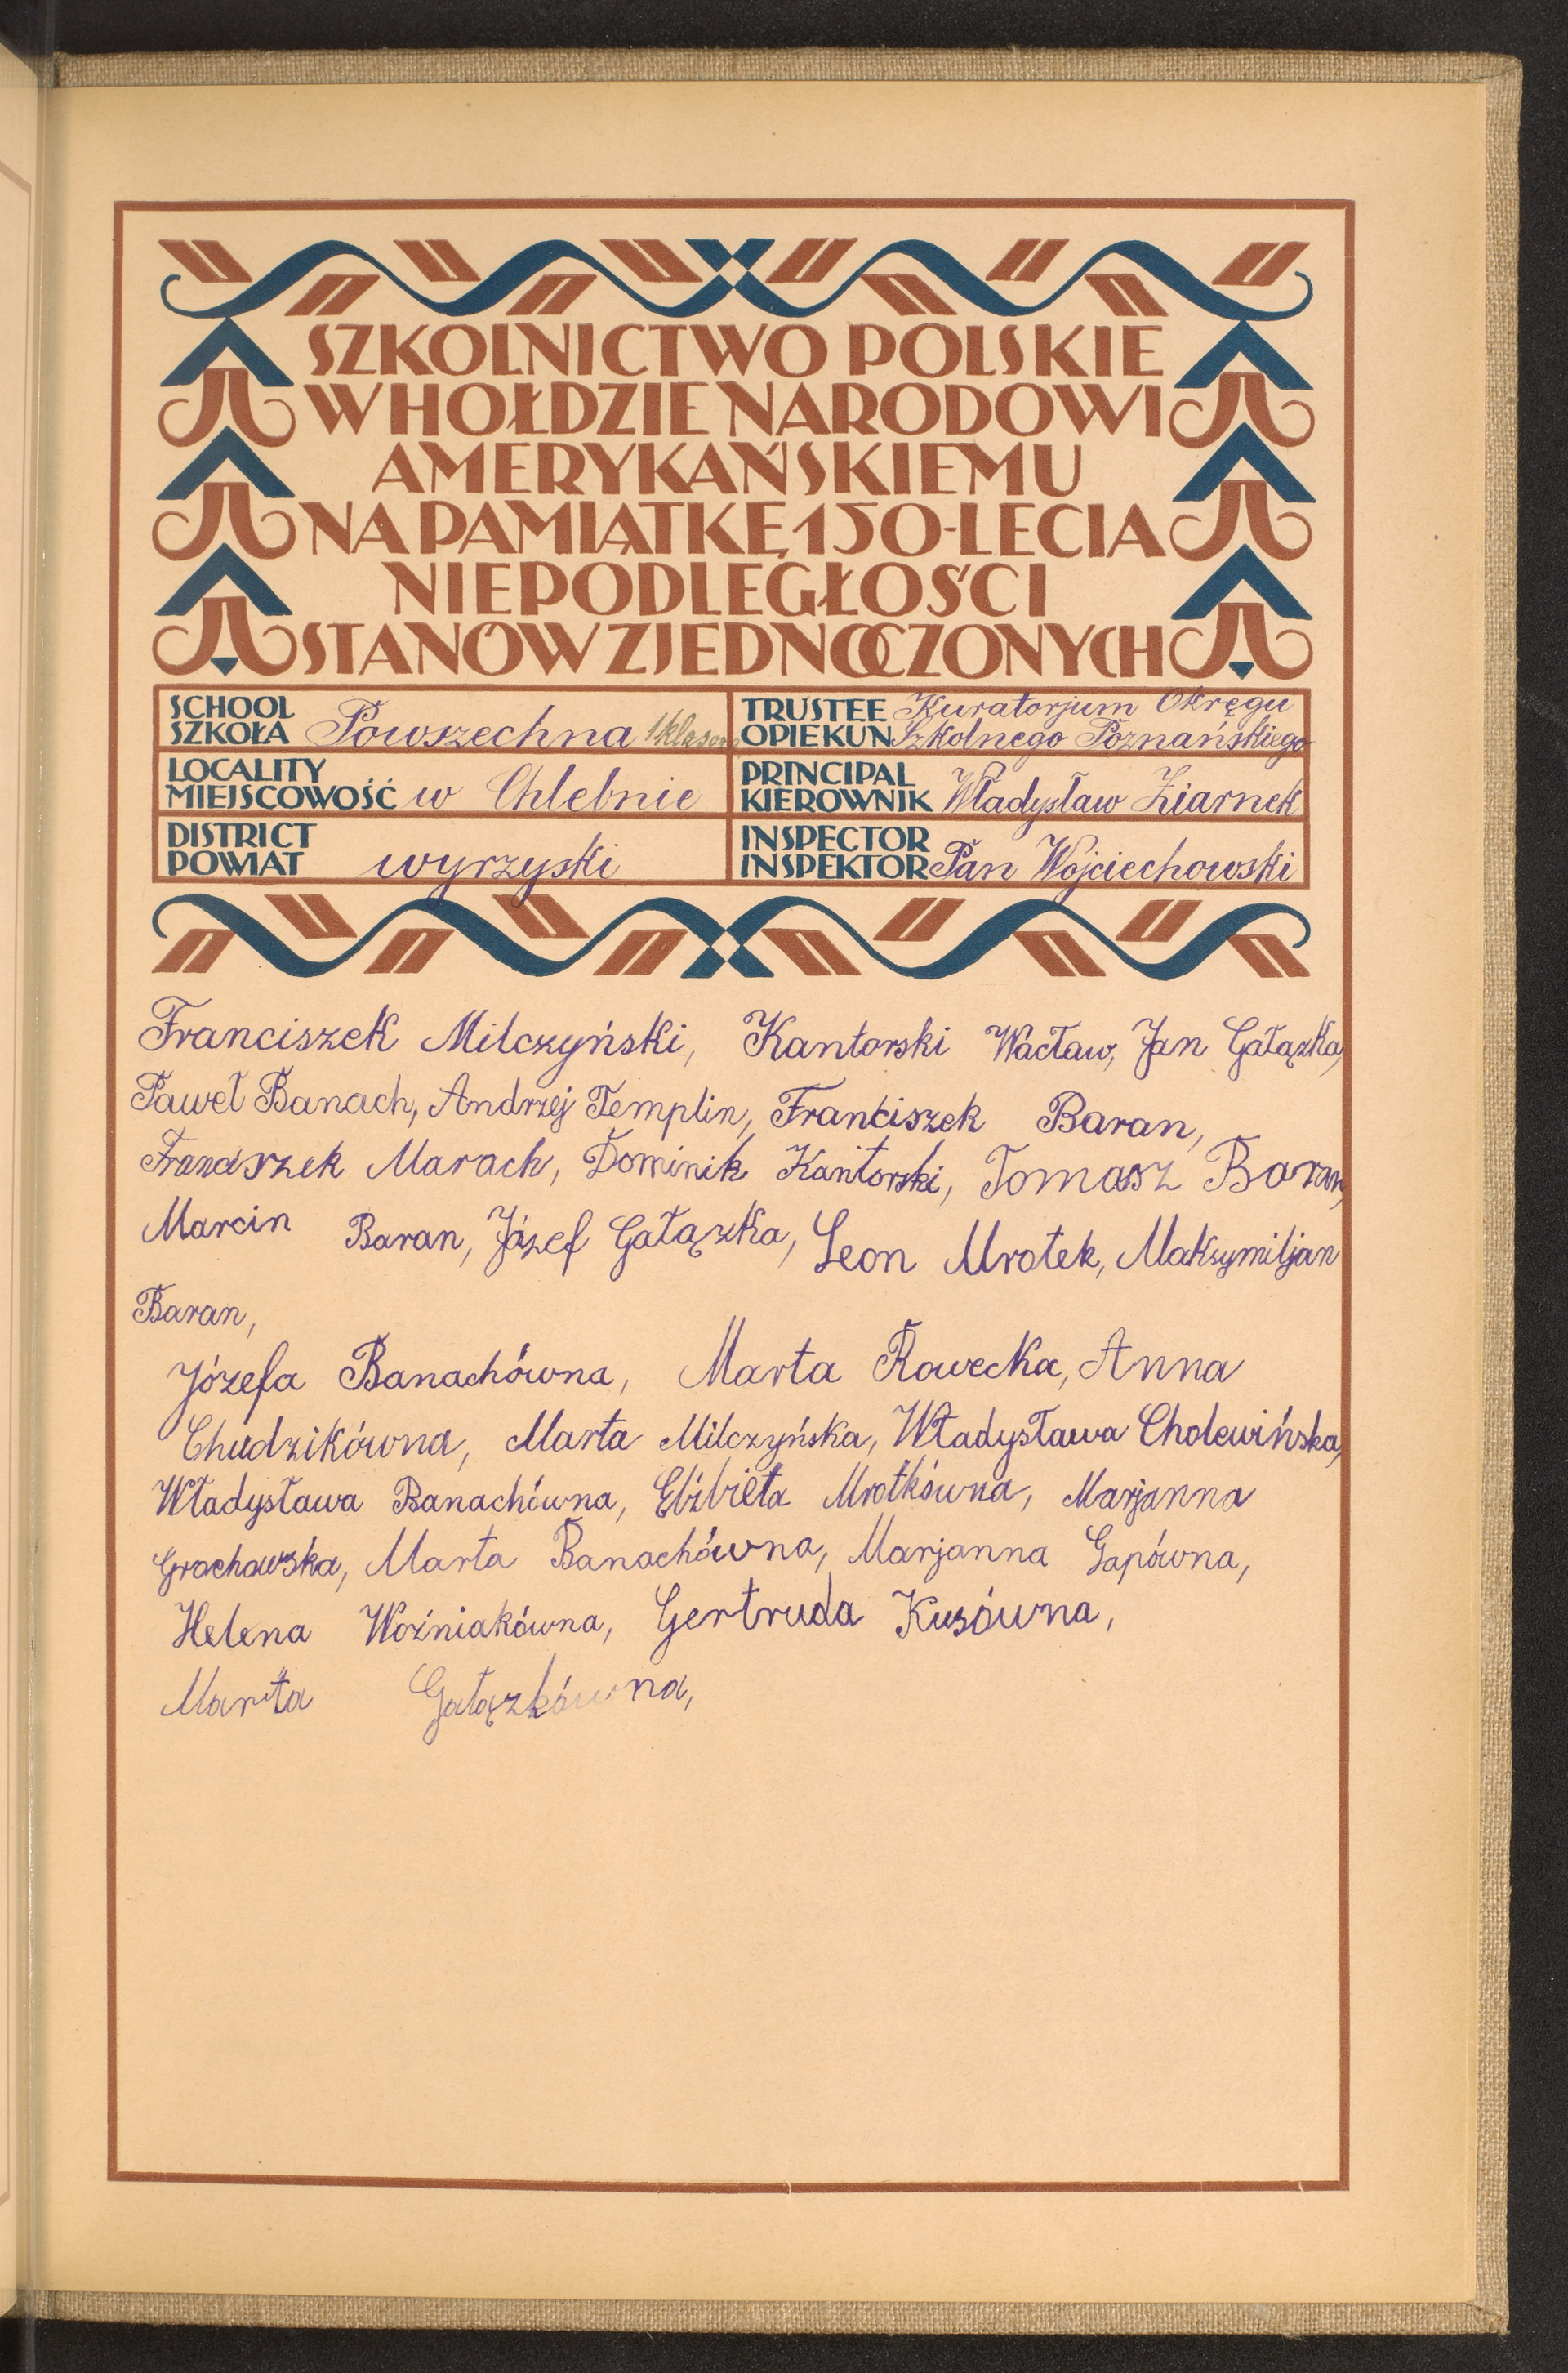 SZKOLNICTWO POLSKIE
W HOŁDZIE NARODOWI
AMERYKAŃSKIEMU
NA PAMIĄTKĘ 150-LECIA
NIEPODLEGŁOŚCI
STANÓW ZJEDNOCZONYCH
SCHOOL
SZKOŁA Powszechna 1 klasowa
LOCALITY
MIEJSCOWOŚĆ w Chlebnie
DISTRICT
POWIAT wyrzyski
TRUSTEE Kuratorjum Okręgu
OPIEKUN Szkolnego Poznańskiego
PRINCIPAL
KIEROWNIK Władysław Ziarnek
INSPECTOR
INSPEKTOR Pan Wojciechowski
Franciszek Milczyński, Kantorski Wacław, Jan Gałązka,
Paweł Banach, Andrzej Templin, Franciszek Baran,
Franciszek Marach, Dominik Kantorski, Tomasz Baran,
Marcin Baran, Józef Gałązka, Leon Mrotek, Maksymiljan
Baran,
Józefa Banachówna, Marta Rowecka, Anna
Chudzikówna, Marta Milczyńska, Władysława Cholewińska,
Władysława Banachówna, Elżbieta Mrotkówna, Marjanna
Grochowska, Marta Banachówna, Marjanna Gapówna,
Helena Woźniakówna, Gertruda Kusówna,
Marta Gałązkówna,